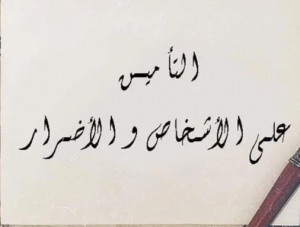 التأميس
على الأشخاص و الأضرار